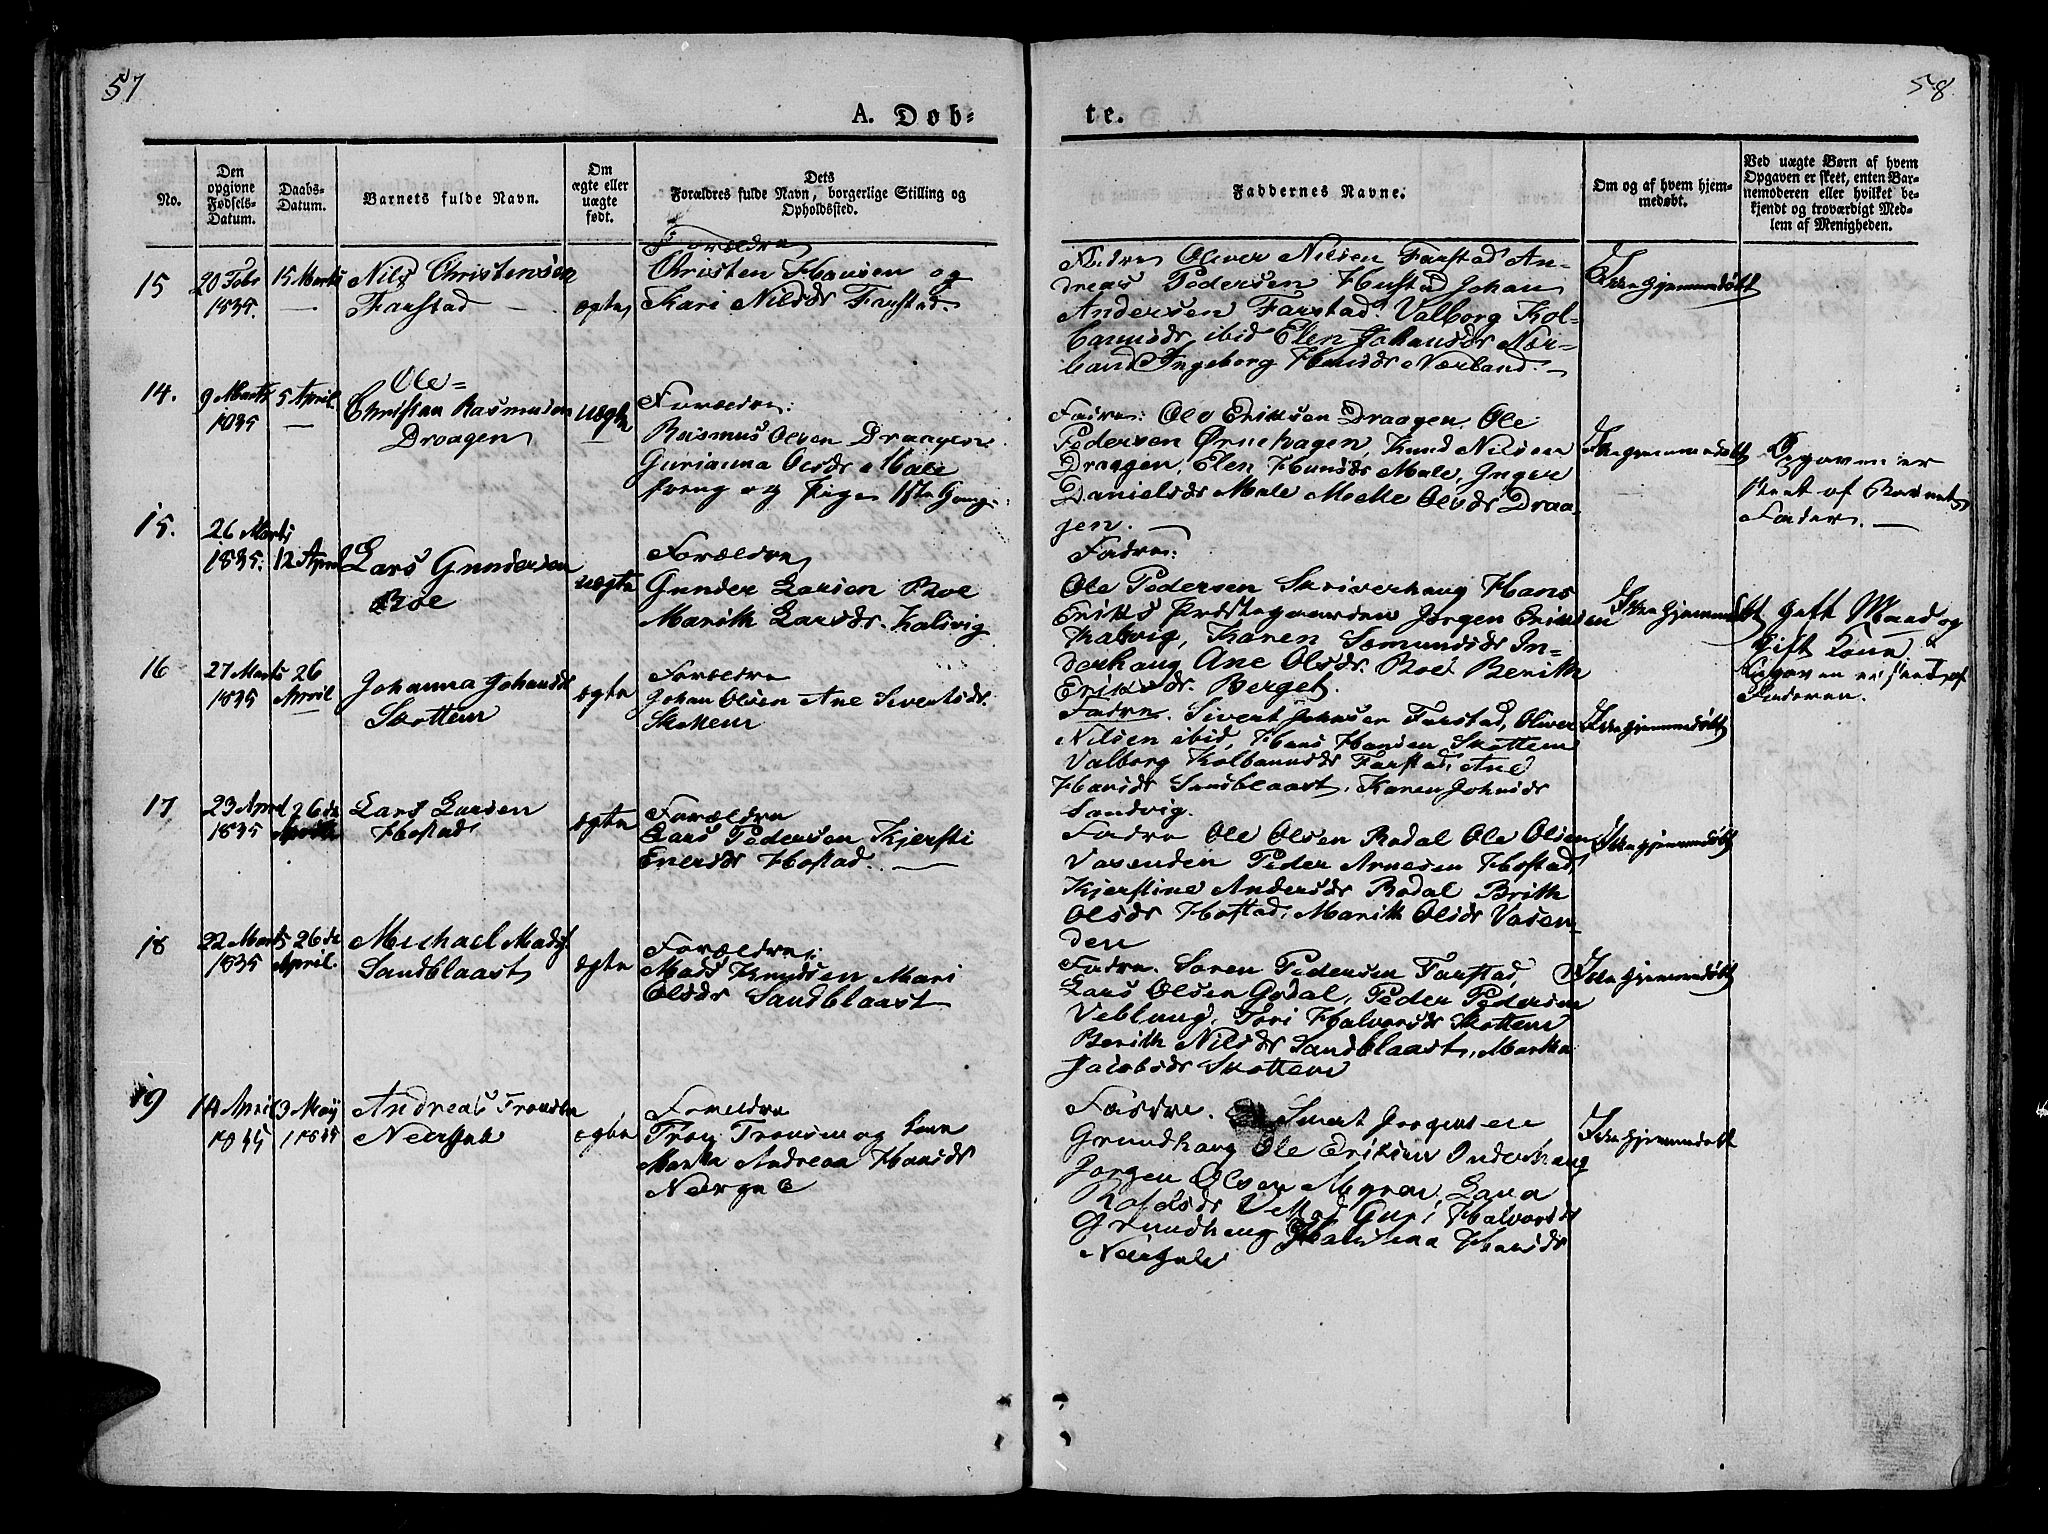 57
58
A. Døb-
te.
No.
Den opgivne Fødsels-Datum.
Daabs-Datum.
Barnets fulde Navn.
Om ægte eller uægte født.
Dets Forældres fulde Navn, borgerlige Stilling og Opholdssted.
Faddernes Navne.
Om og af hvem hjemmedøbt.
Ved uægte Børn af hvem Opgaven er skeet, enten Barnemoderen eller hvilket bekjendt og troværdigt Medlem af Menigheden.
15
20 Febr
1835.
15 Marts
Nils Christensen
Farstad
ægte
Forældre
Christen Hansen og
Kari Nilsdr Farstad.
Fadre Oliver Nilsen Farstad An-
dreas Pedersen Hustad Johan
Andersen Farstad Valborg Kol-
bannsdr ibid Elen Johansdr Nær-
land Ingeborg Hansdr Nærland.
Ikke hjemmedøbt
14.
9 Marts
1835
5 April
Ole
Christian Rasmusen
Draagen
uægte
Forældre:
Rasmus Olsen Draagen
Gurianna Olsdr Male
og Pige 1ste Gang
Fadre: Ole Eriksen Draagen, Ole
Pedersen Ørnehagen, Knud Nilsen
Draagen, Elen Hansdr Male, Inger
Danielsdr Male Olsdr Draa
gen.
Ikke hjemmedøbt
Opgaven er
skeet af Barnets
Fader.
15.
26 Marts
1835.
12 April
Lars Gundersen
Roe
uægte
Forældre
Gunder Larsen Roe
Marith Larsdr. Kalvig
Fadre:
Ole Pedersen Skriverhaug Hans
Eriks Præstegaarden Jørgen Eriksen
Kalvig, Karen Somundsdr In-
derhaug Ane Olsdr. Roe Berith
Eriksdr. Berget.
Ikke hjemmedøbt
Gift Mand og
Gift Kone
Opgaven er skeet af
Faderen.
16
27 Marts
1835
26
April
Johanna Johansdr
Skottem
ægte
Forældre
Johan Olsen Ane Sivertsdr.
Skottem
Fadre. Sivert Johnsen Farstad, Oliver
Nilsen ibid, Hans Hansen Skottem
Valborg Kolbannsdr Farstad, Ane
Hansdr Sandblaast, Karen Johnsdr
Sandvig.
Ikke hjemmedøbt
17
23 April
1835
26de
Lars Larsen
Hostad
ægte
Forældre
Lars Pedersen Kjersti
Enersdr Hostad.
Fadre Ole Olsen Rodal Ole Olsen
Vasenden Peder Arnesen Hostad,
Kjerstine Andersdr Rodal Brith
Olsdr Hostad, Marith Olsdr Vasen-
den
Ikke hjemmedøbt
18
22 Marts
1835
26de
April.
Michael Mads.
Sandblaast
ægte
Forældre:
Mads Knudsen Mari
Olsdr Sandblaast
Fadre. Soren Pedersen Farstad,
Lars Olsen Godal, Peder Pedersen
Veblung, Tori Halvorsdr Skottem
Berith Nilsdr Sandblaast, Martha
Jacobsdr Skottem
Ikke hjemmedøbt
19
14 April
1835
3 May
1835
Andreas
ægte
Forældre
og Kone
Andrea Hansdr
Fadre. Jørgensen
Grundhaug Ole Eriksen Inderhaug
Jørgen Olsen Myren
Guri Halvorsdr
Grundhaug Hansdr
Ikke hjemmedøbt